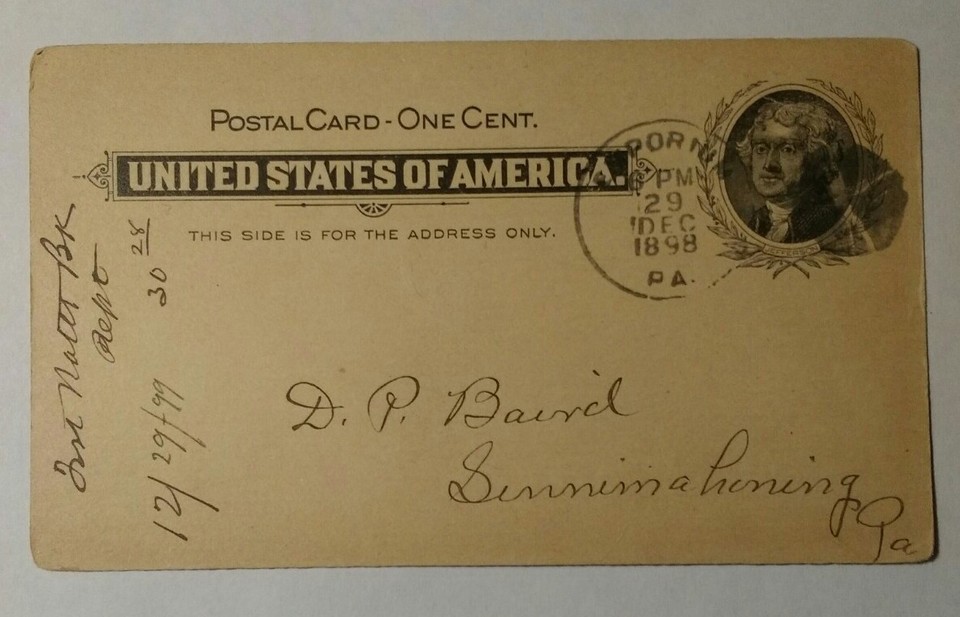 POSTAL CARD - ONE CENT.
UNITED STATES OF AMERICA.
THIS SIDE IS FOR THE ADDRESS ONLY.
PM
29
DEC
1898
PA.
JEFFERSON
D. P. Baird
Sinnemahoning
Pa
Bk
Dept
28
30
12/29/99